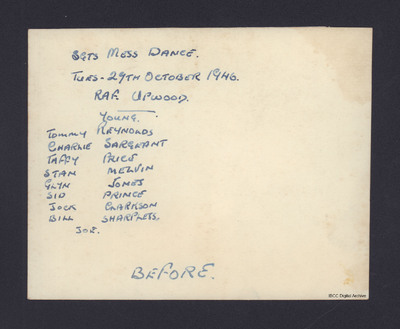 SGTS MESS DANCE.
TUES - 29TH OCTOBER 1946.
RAF UPWOOD.
YOUNG.
TOMMY REYNOLDS
CHARLIE SARGEANT
TAFFY PRICE
STAN MELVIN
GLYN JONES
SID PRINCE
JOCK CLARKSON
BILL SHARPLESS.
JOE.
BEFORE.
IBCC Digital Archive